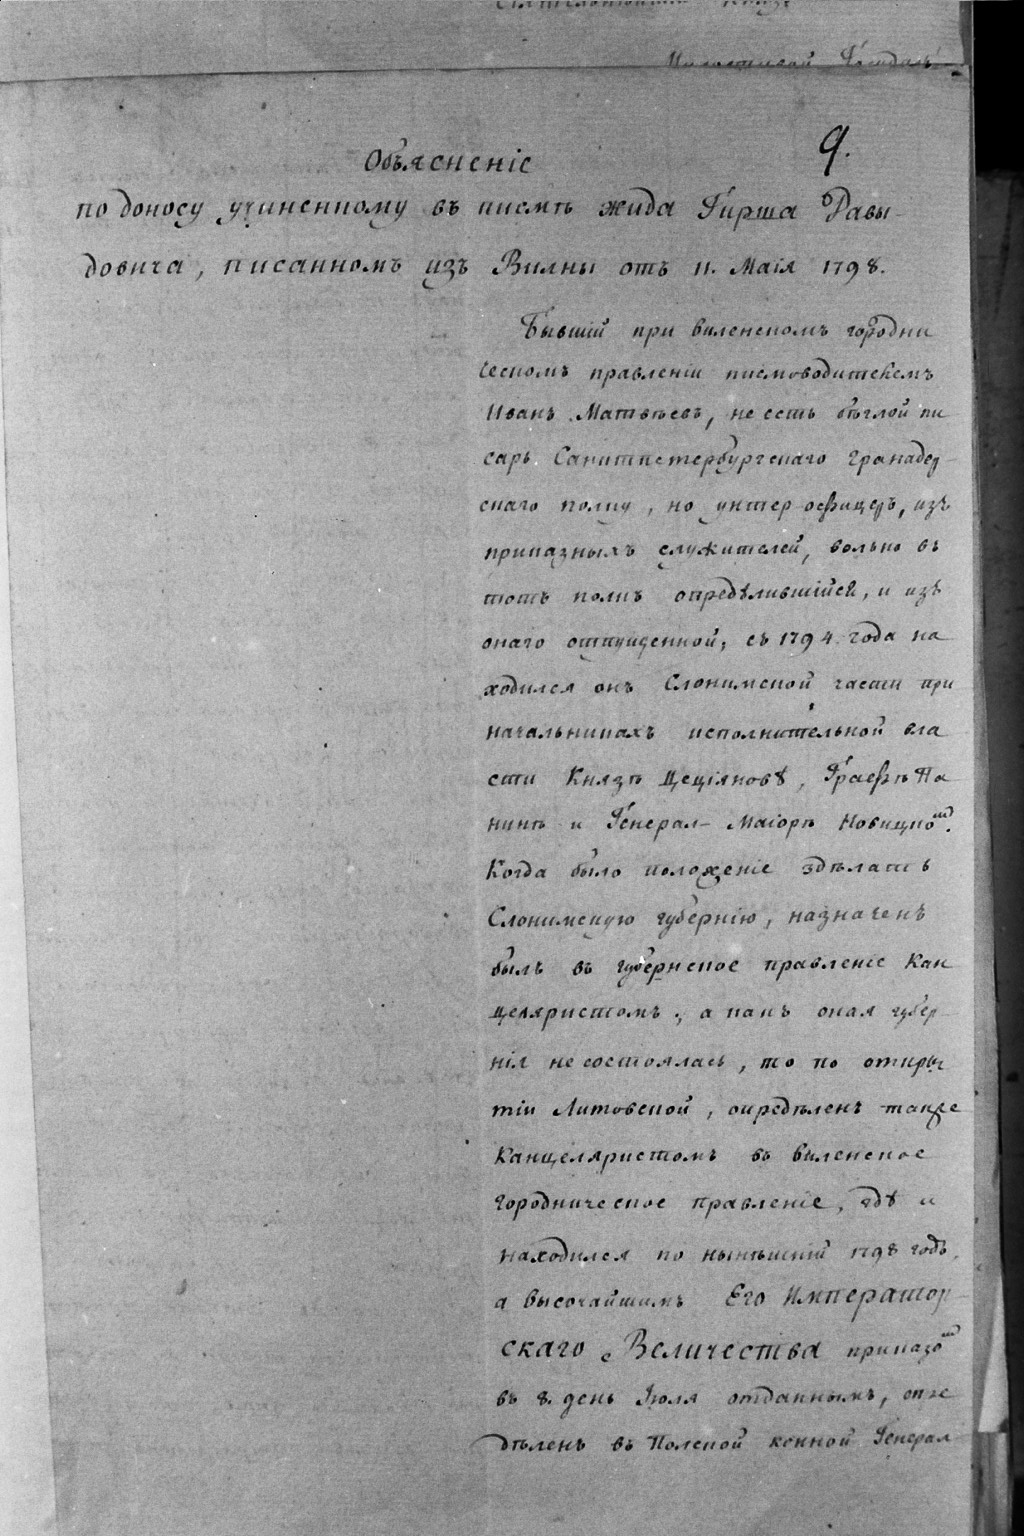 Милостивой Государь
9.
Объясненіе
по доносу учиненному въ писмѣ жида Гирша Давы-
довича, писанномъ изъ Вилны отъ 11. Маія 1798.
Бывшій при виленскомъ городни
ческомъ правленіи писмоводителемъ
Иванъ Матвѣевъ, не есть бѣглой пи
сарь Санктпетербургскаго Гранадер-
скаго полку, но унтер офицеръ, изъ
приказныхъ служителей, вольно въ
тотъ полкъ опредѣлившійся, и изъ
онаго отпущенной; съ 1794 года на
ходился онъ Слонимской части при
начальникахъ исполнительной вла
сти Князѣ Цеціяновѣ, Графѣ Па
нинѣ и Генерал-Маіорѣ Новицкомъ.
Когда было положеніе здѣлать
Слонимскую губернію, назначенъ
былъ въ губернское правленіе Кан
целяристомъ, а какъ оная губер-
нія не состоялась, то по откры
тіи Литовской, опредѣленъ также
Канцеляристомъ въ виленское
городническое правленіе, гдѣ и
находился по нынѣшній 1798 годъ,
а высочайшимъ Его Император-
скаго Величества приказомъ
въ 8. день Іюля отданнымъ, опре
дѣленъ въ Полской конной Генерал-